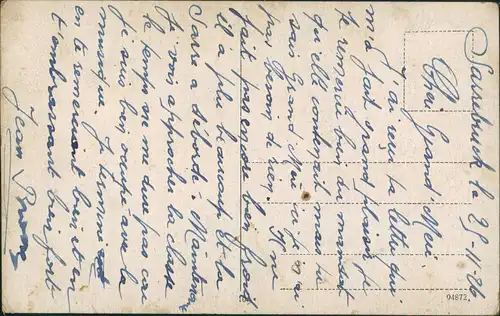 Sarrebruck le 25-11-26
Chère Grand' Meu
J'ai reçu ta lettre qui
m'a fait grand plaisir
je te remercie bien du mandat
qu'elle contenait mais tu
sais Grand Meu ici je n'ai
pas besoin de rien. Il ne
fait pas encore bien froid
il a plu beaucoup et la
Sarre a débordé. Maintenant
je vois approcher la classe
le temps ne me dure pas car
je suis bien occupé avec la
musique. Je termine
en te remerciant bien et en
t'embrassant bien fort
Jean
94872